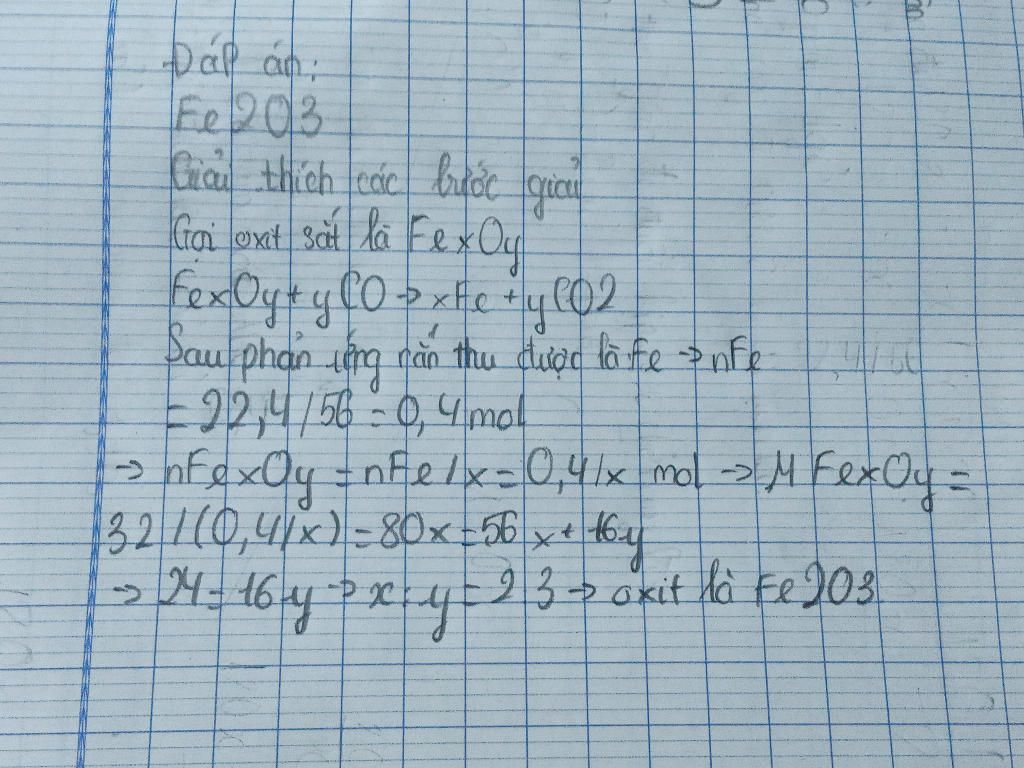 Đáp án:
Fe2O3
Giải thích các bước giải
Gọi oxit sắt là FexOy
FexOy + yCO → xFe + yCO2
Sau phản ứng rắn thu được là Fe → nFe
= 22,4/56 = 0,4 mol
→ nFexOy = nFe/x = 0,4/x mol → MFexOy =
32/(0,4/x) = 80x = 56x + 16y
→ = 16y → x : y = 2 3 → oxit là Fe2O3